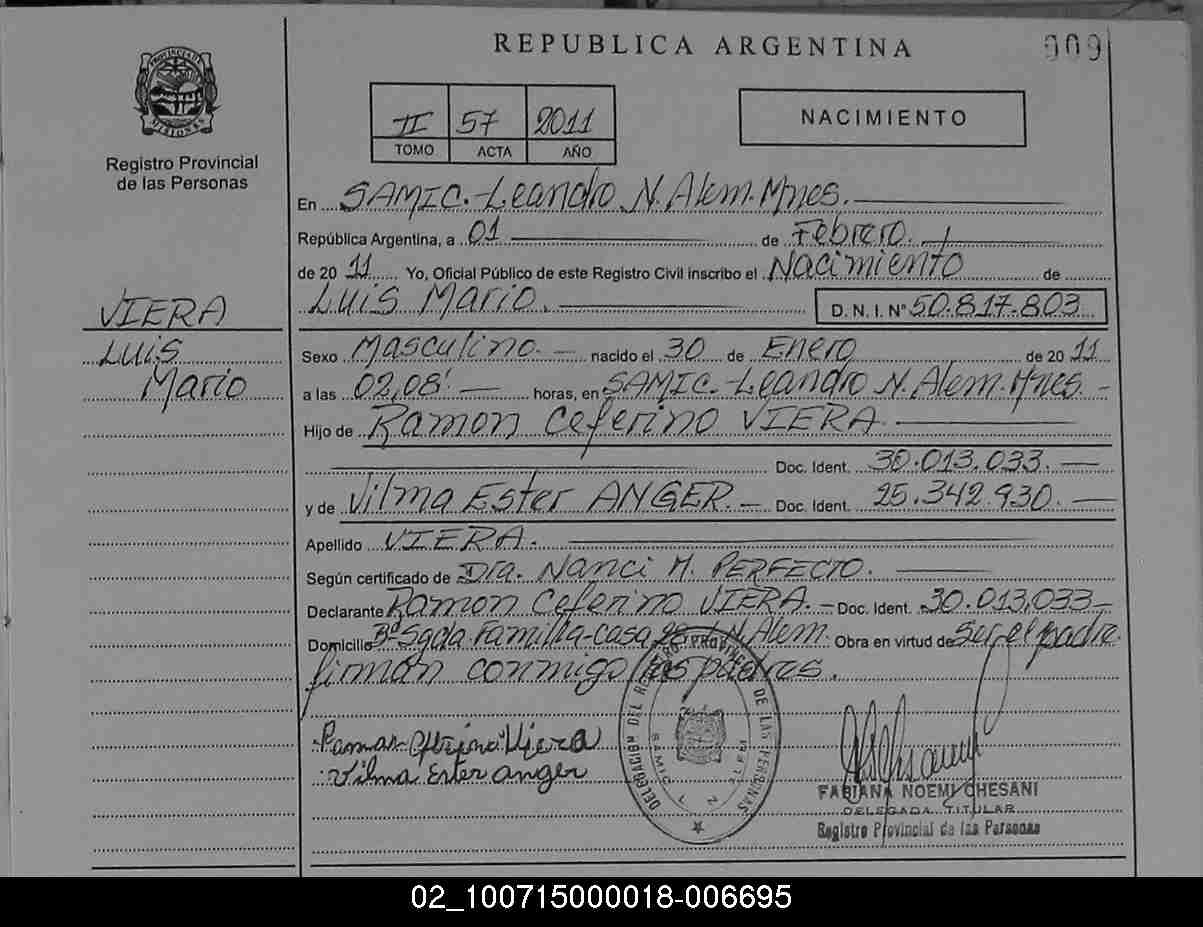 REPUBLICA ARGENTINA
909
PROVINCIA DE MISIONES
Registro Provincial
de las Personas
II 57 2011
TOMO ACTA AÑO
NACIMIENTO
En SAMIC.-Leandro N. Alem. Mnes.
República Argentina, a 01 de Febrero.
de 20 11 Yo, Oficial Público de este Registro Civil inscribo el Nacimiento de
Luis Mario. D. N. I. N° 50.817.803
VIERA
Luis
Mario
Sexo Masculino. nacido el 30 de Enero de 20 11
a las 02,08' horas, en SAMIC.-Leandro N. Alem. Mnes.
Hijo de Ramon Ceferino VIERA
Doc. Ident. 30.013.033.
y de Vilma Ester ANGER. Doc. Ident. 25.342.930.
Apellido VIERA.
Según certificado de Dra. Nanci M. PERFECTO.
Declarante Ramon Ceferino VIERA. Doc. Ident. 30.013.033
Domicilio Bº Sgda Familia-casa L.N. Alem. Obra en virtud de Ser el padre
firman conmigo los padres.
Ramon Ceferino Viera
Vilma Ester anger
DELEGACION DEL REGISTRO PROVINCIAL DE LAS PERSONAS
SAMIC L N ALEM
FABIANA NOEMI CHESANI
DELEGADA TITULAR
Registro Provincial de las Personas
02_100715000018-006695